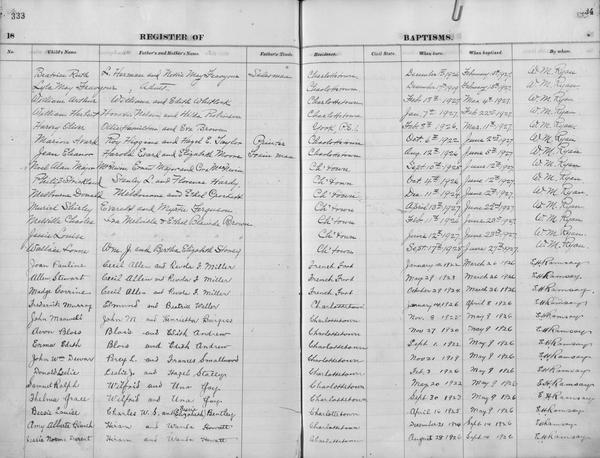 333
34
18 REGISTER OF BAPTISMS.
No. Child's Name Father's and Mother's Name Father's Trade Residence Civil State. When born. When baptized. By whom.
Beatrice Ruth L. Harman and Nettie May Salesman Charlottetown December 1926 February 1927 W. M. Ryan
Lyla May Adult Charlottetown December 17 1909 W. M. Ryan
William Arthur William and Edith Whitlock Charlottetown Feb 13th 1927 Mar 4th 1927 W. M. Ryan
William Herbert Nelson and Hilda Robinson Charlottetown Jan 7th 1927 Feb 22nd 1927 W. M. Ryan
Harris Oliver Hamilton and Eva Brown York P.E.I. Feb 8th 1926 Mar 11th 1927 W. M. Ryan
Marion Roy Higgins and Hazel E. Taylor Painter Charlottetown Oct 6th 1922 June 2nd 1927 W. M. Ryan
Jean Eleanor Harold and Elizabeth Moore Train man Charlottetown Aug 12th 1926 June 5th 1927 W. M. Ryan
Ch'town Sept 10th 1925 June 12th W. M. Ryan
Stanley L. and Florence Hardy Ch'town Oct 4th 1926 June 12th W. M. Ryan
Melbourne Donald Melbourne and Ethel Ch'town Dec 11th June 12th 1927 W. M. Ryan
Muriel Shirley Everett and Myrtle Ferguson Ch'town April 13th 1927 June 22nd 1927 W. M. Ryan
Melville Charles Melville & Ethel Blanche Brown Ch'town Feb 11th 1926 June 23rd 1927 W. M. Ryan
Jessie Louise Ch'town June 12th 1927 June 23rd 1927 W. M. Ryan
Wallace Lorne Wm. J. and Bertha Elizabeth Ch'town Sept 17th 1925 June 27th 1927 W. M. Ryan
Joan Pauline Cecil Allen and F Miller French Fort January 1926 March 26 1926 E H Ramsay
Allen Stewart Cecil Allen and F Miller French Fort May 28 1923 March 26 1926 E H Ramsay
Madge Corrine Cecil Allen and F Miller French Fort October 29 1924 March 26 1926 E H Ramsay
Frederick Murray Edmund and Beatrice Weller Charlottetown January 1926 April 8 1926 E H Ramsay
John John M. and Henrietta Burgess Charlottetown Nov 8 1925 May 9 1926 E H Ramsay
Avon Blois Blois and Edith Andrew Charlottetown Nov 27 1920 May 9 1926 E H Ramsay
Erma Edith Blois and Edith Andrew Charlottetown Sept 1 1922 May 9 1926 E H Ramsay
John Wm Dewar Percy L. and Frances Smallwood Charlottetown Nov 21 1919 May 9 1926 E H Ramsay
Donald Leslie Leslie J. and Hazel Charlottetown Feb 3 1926 May 9 1926 E H Ramsay
Samuel Ralph Wilfred and Una Gay Charlottetown May 20 1922 May 9 1926 E H Ramsay
Thelma Grace Wilfred and Una Gay Charlottetown Sept 30 1923 May 9 1926 E H Ramsay
Bessie Louise Charles W. S. and Elizabeth Bentley Charlottetown April 16 1925 May 9 1926 E H Ramsay
Amy Alberta Hiram and Wanda Howatt Charlottetown December 21 1924 Sept 14 1926 E H Ramsay
Norma Hiram and Wanda Howatt Charlottetown August 28 1926 Sept 14 1926 E H Ramsay